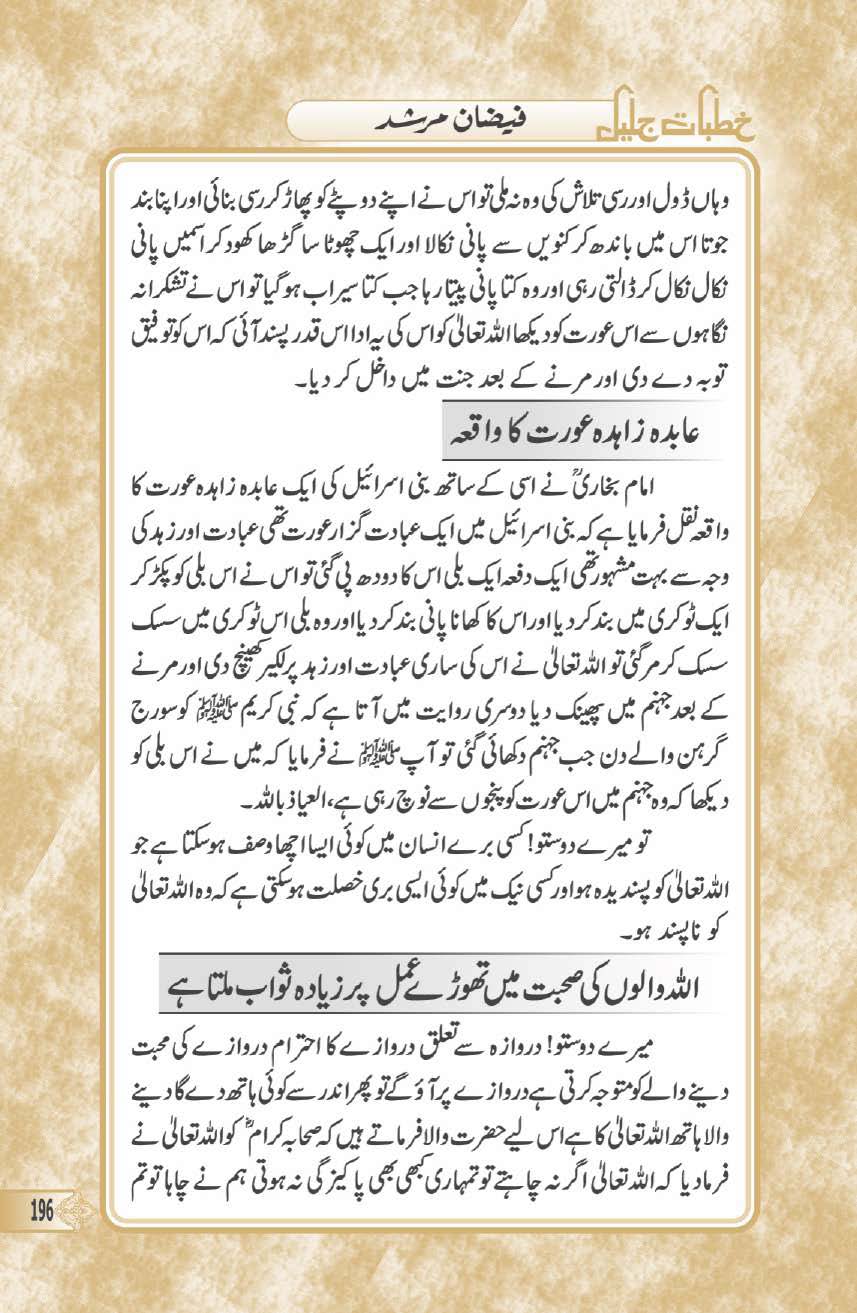 خطبات جلیل
فیضان مرشد
وہاں ڈول اور رسی تلاش کی وہ نہ ملی تو اس نے اپنے دوپٹے کو پھاڑ کر رسی بنائی اور اپنا بند
جوتا اس میں باندھ کر کنویں سے پانی نکالا اور ایک چھوٹا سا گڑھا کھود کر اسمیں پانی
نکال نکال کر ڈالتی رہی اور وہ کتا پانی پیتا رہا جب کتا سیراب ہوگیا تو اس نے تشکرانہ
نگاہوں سے اس عورت کو دیکھا اللہ تعالیٰ کو اس کی یہ ادا اس قدر پسند آئی کہ اس کو توفیق
توبہ دے دی اور مرنے کے بعد جنت میں داخل کر دیا۔
عابدہ زاہدہ عورت کا واقعہ
امام بخاریؒ نے اسی کے ساتھ بنی اسرائیل کی ایک عابدہ زاہدہ عورت کا
واقعہ نقل فرمایا ہے کہ بنی اسرائیل میں ایک عبادت گزار عورت تھی عبادت اور زہد کی
وجہ سے بہت مشہور تھی ایک دفعہ ایک بلی اس کا دودھ پی گئی تو اس نے اس بلی کو پکڑ کر
ایک ٹوکری میں بند کر دیا اور اس کا کھانا پانی بند کر دیا اور وہ بلی اس ٹوکری میں سسک
سسک کر مر گئی تو اللہ تعالیٰ نے اس کی ساری عبادت اور زہد پر لکیر کھینچ دی اور مرنے
کے بعد جہنم میں پھینک دیا دوسری روایت میں آتا ہے کہ نبی کریم ﷺ کو سورج
گرہن والے دن جب جہنم دکھائی گئی تو آپ ﷺ نے فرمایا کہ میں نے اس بلی کو
دیکھا کہ وہ جہنم میں اس عورت کو پنجوں سے نوچ رہی ہے، العیاذ باللہ۔
تو میرے دوستو! کسی برے انسان میں کوئی ایسا اچھا وصف ہوسکتا ہے جو
اللہ تعالیٰ کو پسندیدہ ہو اور کسی نیک میں کوئی ایسی بری خصلت ہوسکتی ہے کہ وہ اللہ تعالیٰ
کو ناپسند ہو۔
اللہ والوں کی صحبت میں تھوڑے عمل پر زیادہ ثواب ملتا ہے
میرے دوستو! دروازہ سے تعلق دروازے کا احترام دروازے کی محبت
دینے والے کو متوجہ کرتی ہے دروازے پر آؤ گے تو پھر اندر سے کوئی ہاتھ دے گا دینے
والا ہاتھ اللہ تعالیٰ کا ہے اس لیے حضرت والا فرماتے ہیں کہ صحابہ کرامؓ کو اللہ تعالیٰ نے
فرمادیا کہ اللہ تعالیٰ اگر نہ چاہتے تو تمہاری کبھی بھی پاکیزگی نہ ہوتی ہم نے چاہا تو تم
196